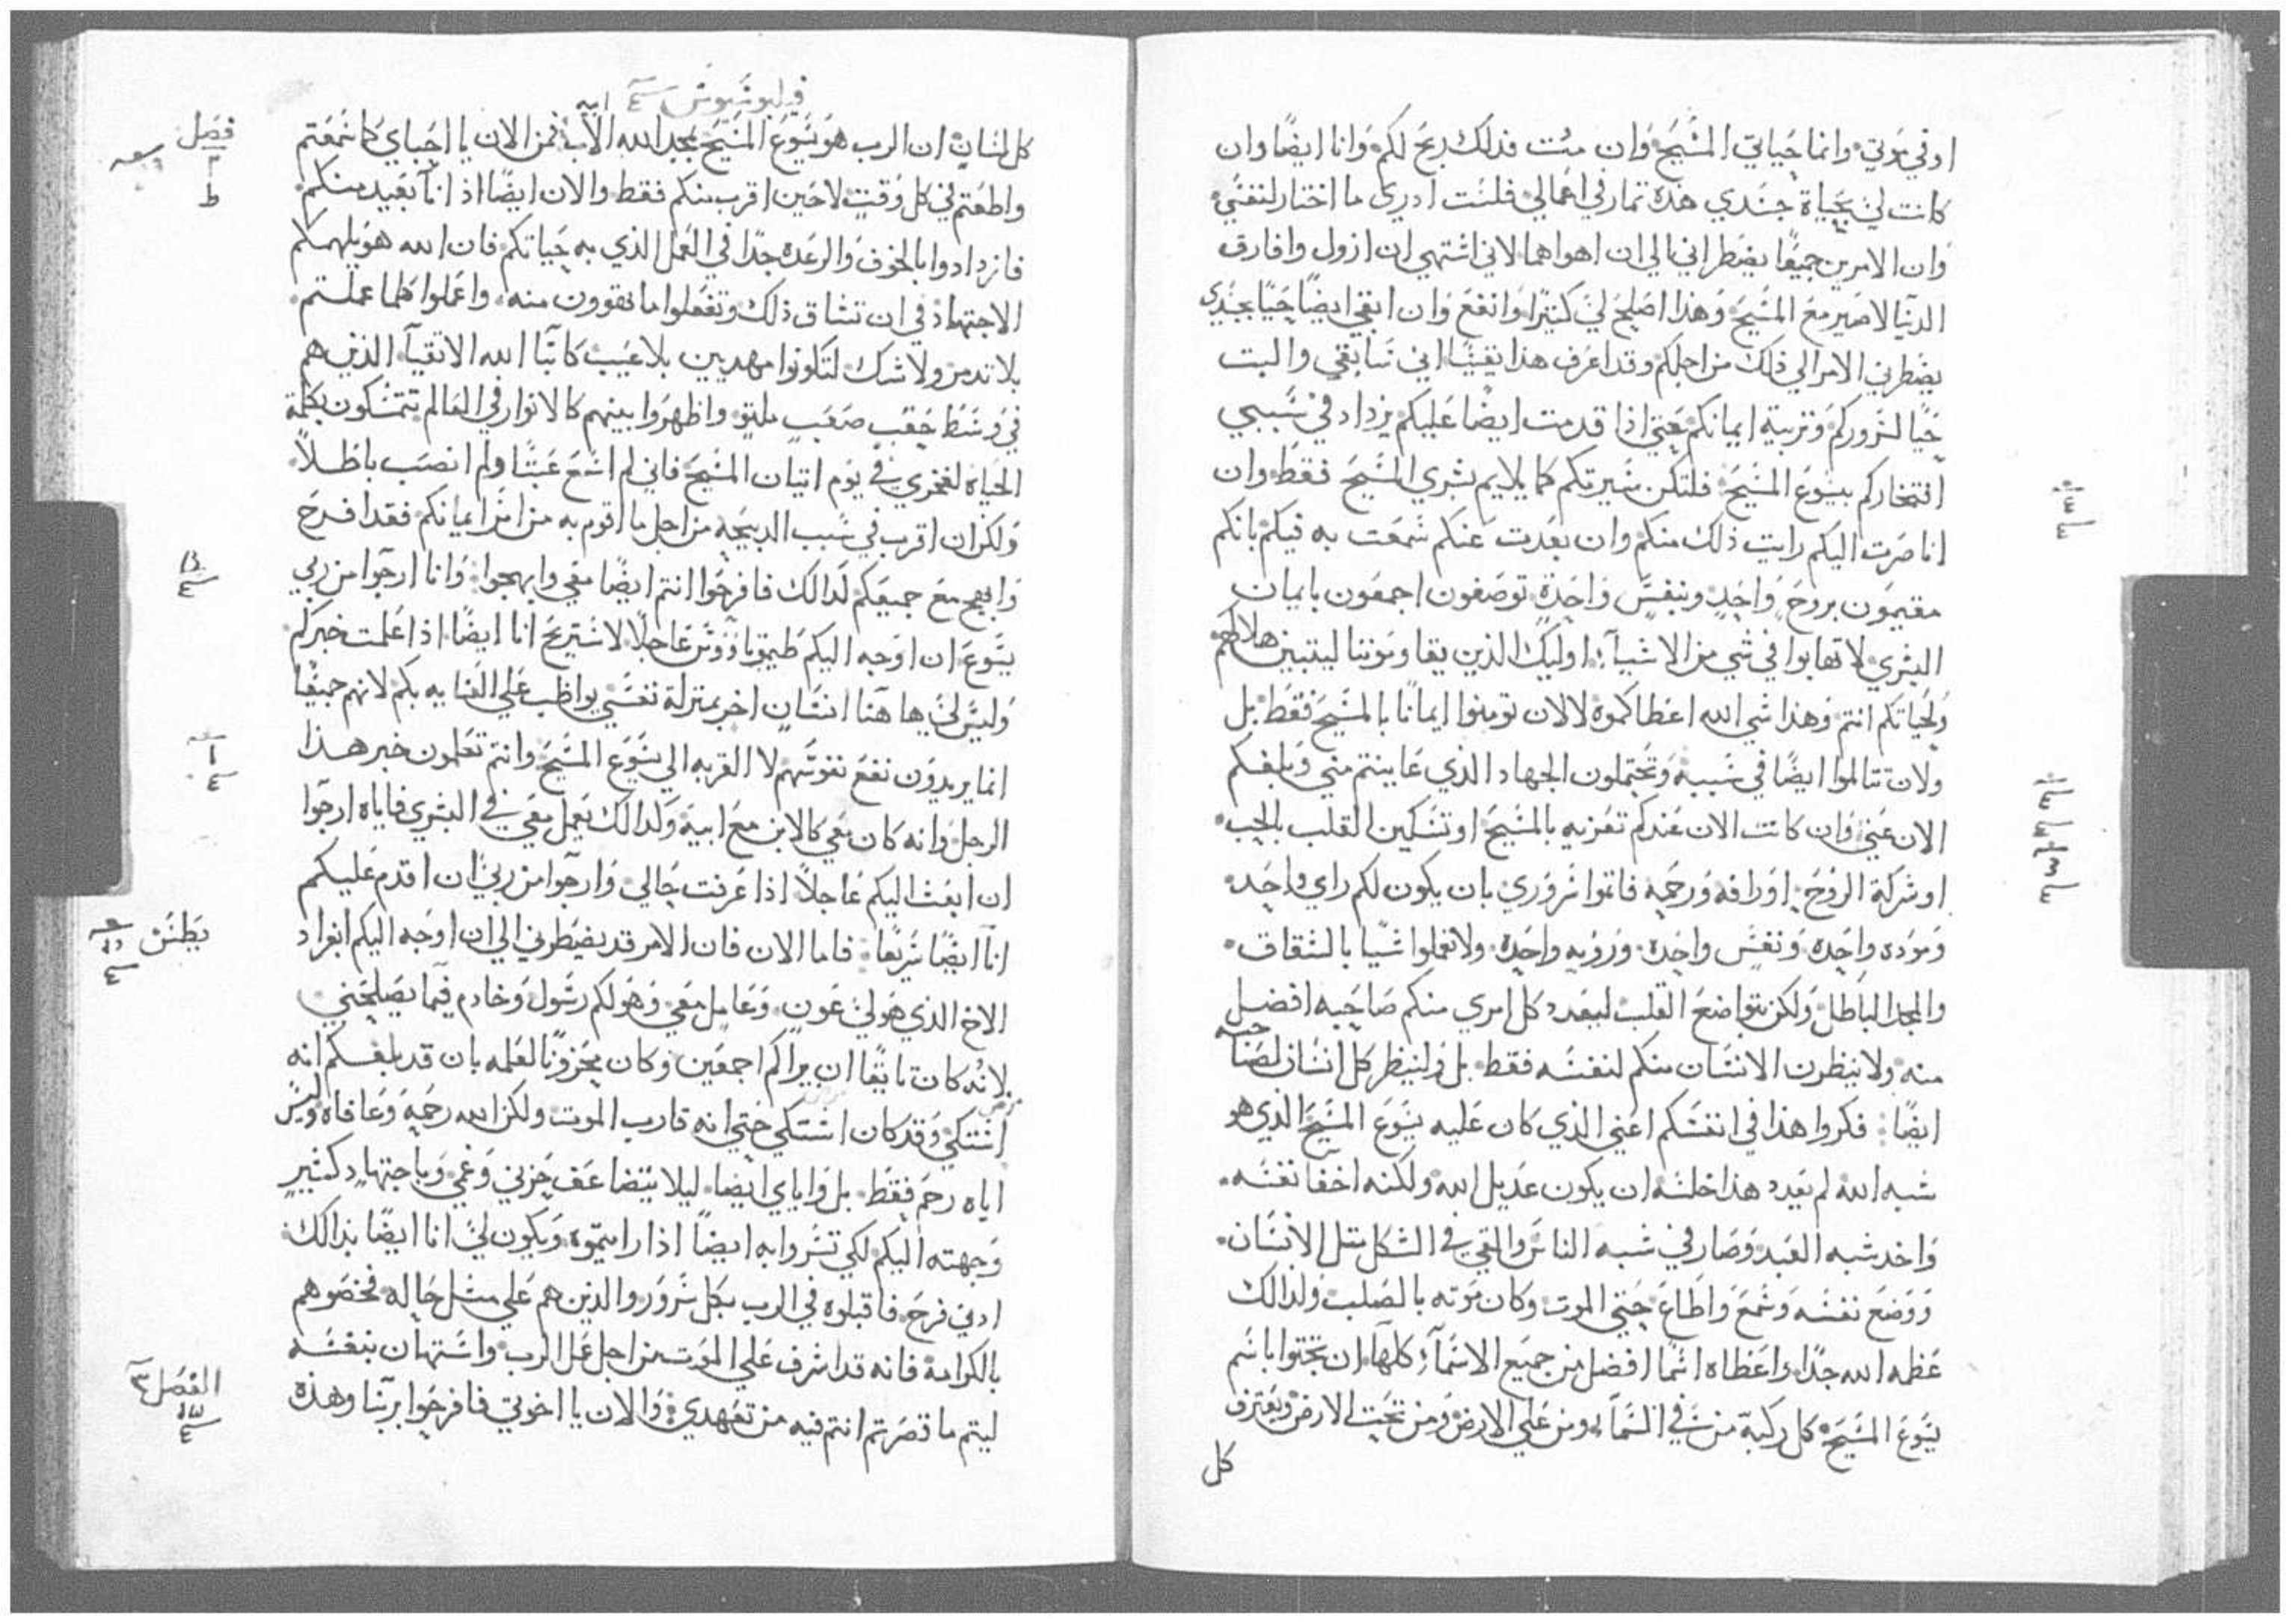 او في موتي وانما حياتي المسيح وان مت فدلك ربح لكم وانا ايضا وان
كانت لي بحياة جسدي هذه تمار في اعمالي فلست ادري ما اختار لنفسي
وان الامرين جميعا يضطراني الي ان اهواهما لاني اشتهي ان ازول وافارق
الدنيا لاصير مع المسيح وهذا اصلح لي كثيرا وانفع وان ابقي ايضا حيا بجسدي
يضطرني الامر الي ذلك من اجلكم وقد اعرف هذا يقينا اني سابقي والبت
حيا لسروركم وتربية ايمانكم حتي اذا قدمت ايضا عليكم يزداد في سببي
افتخاركم بيسوع المسيح فلتكن سيرتكم كما يلايم بشري المسيح فقط وان
انا صرت اليكم رايت ذلك منكم وان بعدت عنكم سمعت به فيكم بانكم
مقيمون بروح واحد وبنفس واحدة توصفون اجمعون بايمان
البشري لا تهابوا في شي من الاشيآ اوليك الذين يقاومونا ليتبين هلاكهم
ولحياتكم انتم وهذا شي الله اعطاكموه لا لان تومنوا ايمانا بالمسيح فقط بل
ولان تتالموا ايضا في سببه وتحتملون الجهاد الذي عاينتم مني وبلغكم
الان عني وان كانت الان عندكم تعزيه بالمسيح او تسكين القلب بالحب
او شركة الروح او رافه ورحمه فاتموا سروري بان يكون لكم راي واحد
وموده واحده ونفس واحدة ورويه واحدة ولا تعملوا شيا بالشقاق
والمجد الباطل ولكن بتواضع القلب ليعدد كل امري منكم صاحبه افضل
منه ولا ينظرن الانسان منكم لنفسه فقط بل ولينظر كل انسان لصاحبه
ايضا فكروا هذا في انفسكم اعني الذي كان عليه يسوع المسيح الذي هو
شبه الله لم يعدد هذا خلسه ان يكون عديل الله ولكنه اخفا نفسه
واخد شبه العبد وصار في شبه الناس والقي في الشكل متل الانسان
ووضع نفسه وسمع واطاع حتي الموت وكان موته بالصلب ولدالك
عظمه الله جدا واعطاه اسما افضل من جميع الاسمآ كلها ان تجتوا باسم
يسوع المسيح كل ركبة من في السمآ ومن علي الارض ومن تحت الارض ويعترف
كل
فيليبوسيوس
كل لسان ان الرب هو يسوع المسيح بمجد الله الاب فمن الان يا احباي كما سمعتم
واطعتم لي كل وقت لا حين اقرب منكم فقط والان ايضا اذ انا بعيد منكم
فازدادوا بالخوف والرعده جدا في العمل الذي به حياتكم فان الله هو يلهمكم
الاجتهاد في ان تشاق ذلك وتفعلوا ما تقوون منه واعملوا كلما عملتم
بلا تدمر ولا شك لتكونوا مهديين بلا عيب كابنآ الله الاتقيآ الذين هم
في وسط حقب صعب ملتو واظهروا بينهم كالانوار في العالم تتمسكون بكلمة
الحياة لفخري في يوم اتيان المسيح فاني لم اسع عبثا ولم انصب باطلا
ولكن ان اقرب في سبب الدبيحه من اجل ما اقوم به من امر ايمانكم فقد افرح
وابهج مع جميعكم لدالك فافرحوا انتم ايضا معي وابهجوا وانا ارجوا من ربي
يسوع ان اوجه اليكم طيموتاووس عاجلا لاستريح انا ايضا اذا علمت خبركم
وليس لي هاهنا انسان اخر بمنزلة نفسي يواظب علي العنايه بكم لانهم جميعا
انما يريدون نفع نفوسهم لا القربه الي يسوع المسيح وانتم تعلمون خبر هذا
الرجل وانه كان معي كالابن مع ابيه ولدالك يعمل معي في البشري فاياه ارجوا
ان ابعث اليكم عاجلا اذا عرفت حالي وارجوا من ربي ان اقدم عليكم
انا ايضا سريعا فاما الان فان الامر قد يضطرني الي ان اوجه اليكم ابفراد
الاخ الذي هو لي عون وعامل معي وهو لكم رسول وخادم فيما يصلحني
لانه كان تايقا ان يراكم اجمعين وكان محزونا لعلمه بان قد بلغكم انه
اشتكي وقد كان اشتكي حتي انه قارب الموت ولكن الله رحمه وعافاه وليس
اياه رحم فقط بل واياي ايضا ليلا يتضاعف حزني وغمي وباجتهاد كثير
وجهته اليكم لكي تسروا به ايضا اذا رايتموه ويكون لي انا ايضا بدالك
ادني فرح فاقبلوه في الرب بكل سرور والذين هم علي مثل حاله فخصوهم
بالكرامة فانه قد اشرف علي الموت من اجل عمل الرب واستهان بنفسه
ليتم ما قصرتم انتم فيه من تعهدي والان يا اخوتي فافرحوا بربنا وهذه
فصل
الفصل ٣